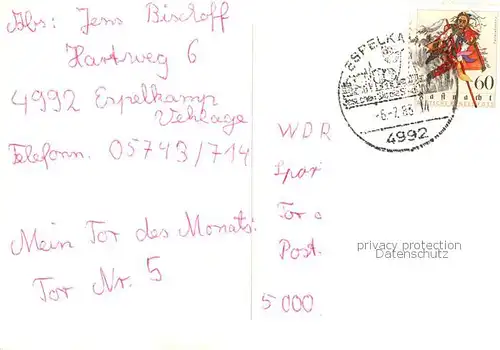 Abs: Jens Bischoff
Hartweg 6
4992 Espelkamp
Vehlage
Telefonn. 05743/714
Mein Tor des Monats:
Tor Nr. 5
WDR
Spor
Tor
Post.
5000
ESPELKA
-6.2.83
4992
60
Fastnacht
privacy protection
Datenschutz